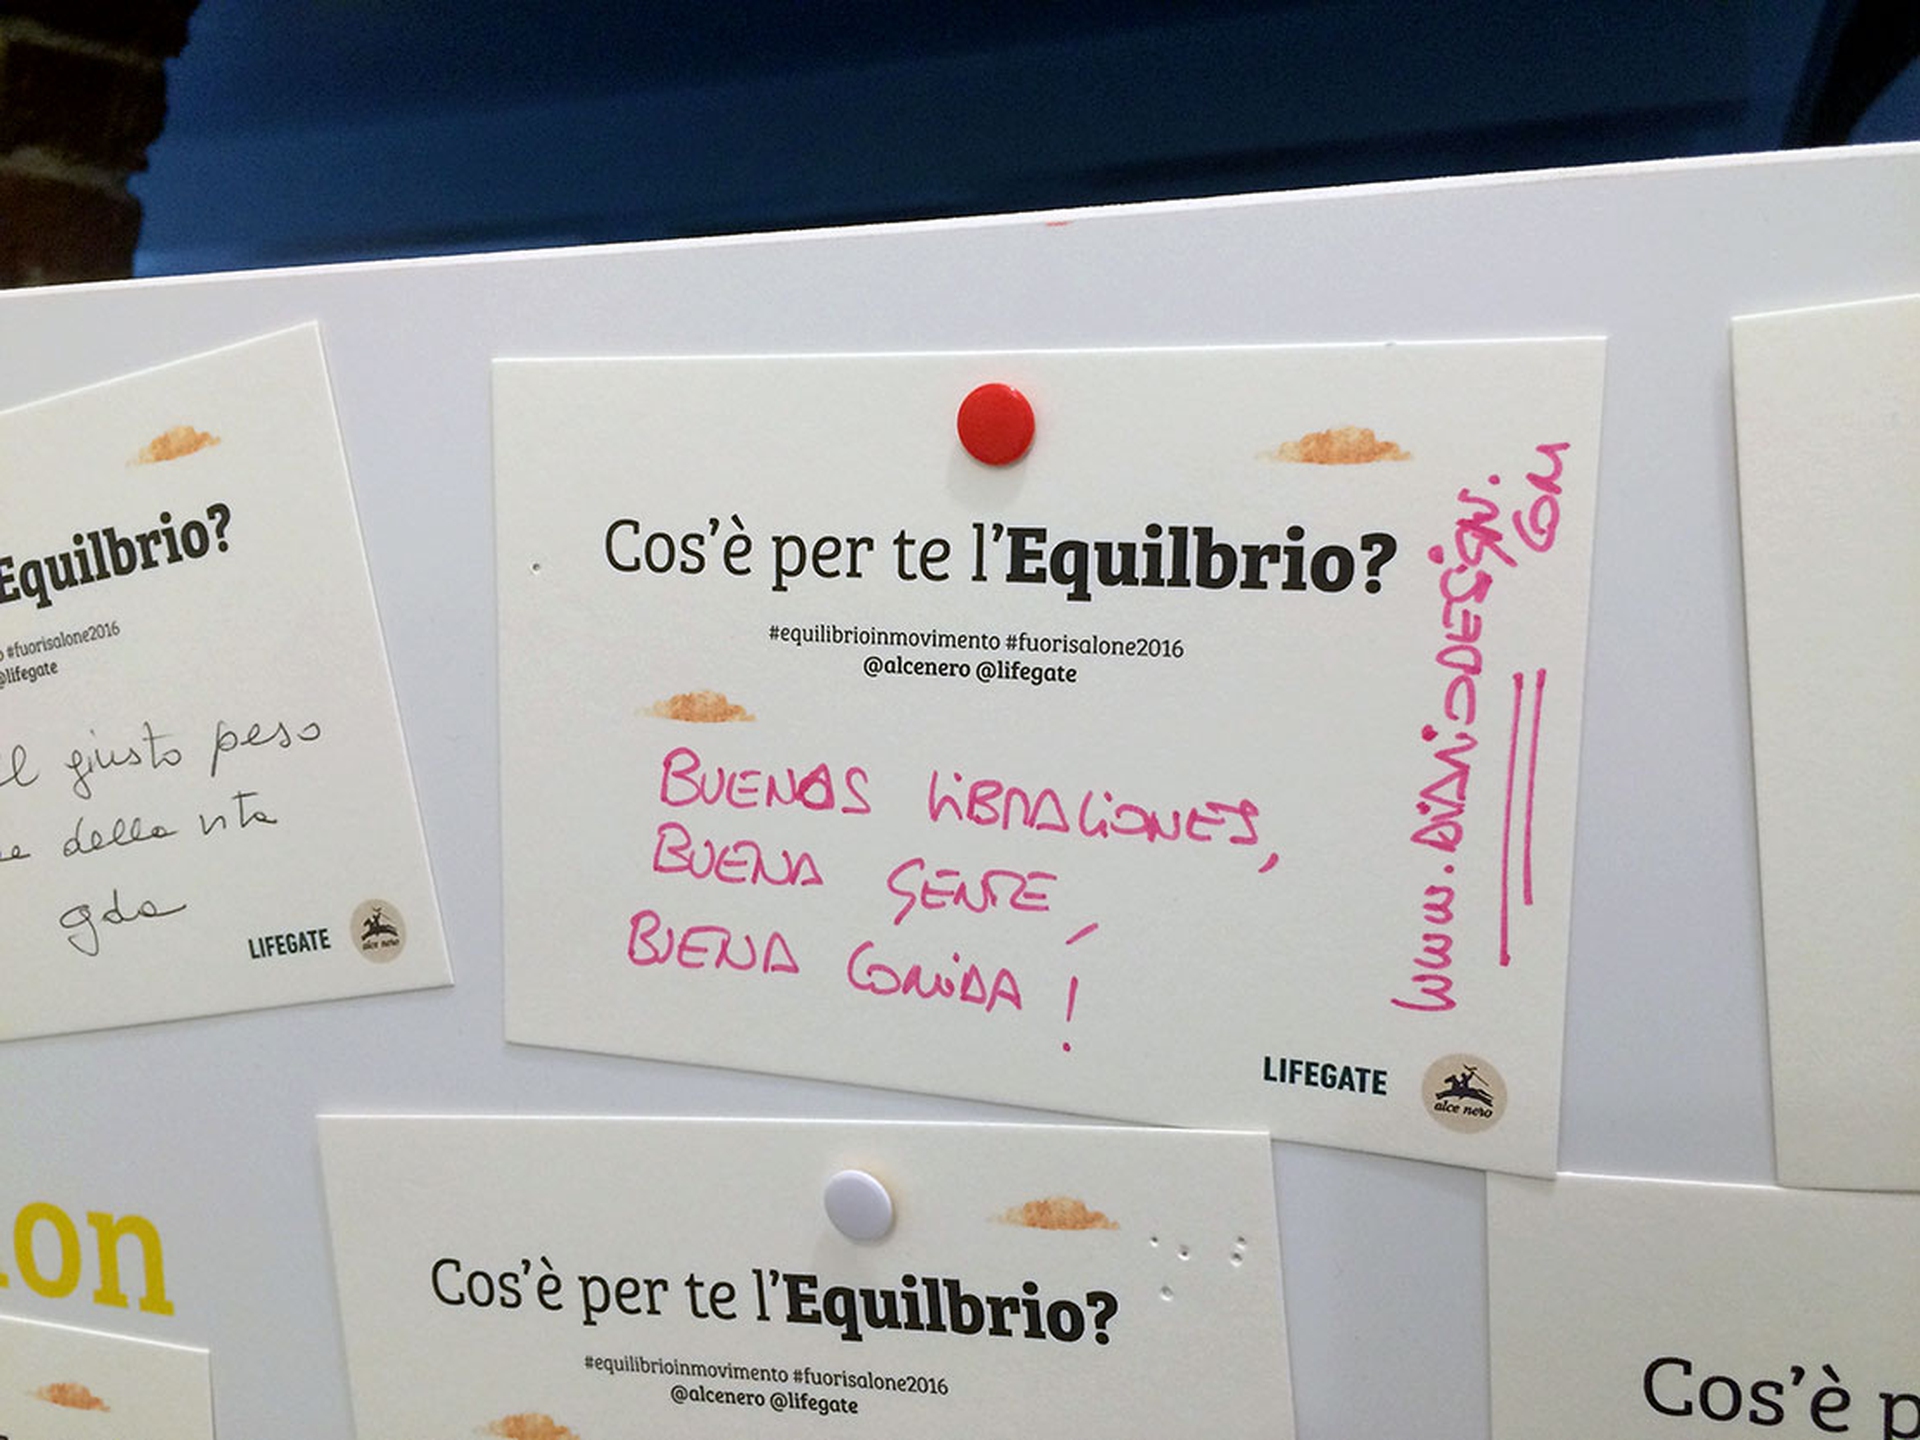 Equilbrio?
#fuorisalone2016
@lifegate
il giusto peso
della vita
LIFEGATE
alce nero
Cos'è per te l'Equilbrio?
#equilibrioinmovimento #fuorisalone2016
@alcenero @lifegate
BUENAS LIBRACIONES,
BUENA GENTE,
BUENA COMIDA!
www.DIDIANIDDESIGN.
COM
LIFEGATE
alce nero
on
Cos'è per te l'Equilbrio?
#equilibrioinmovimento #fuorisalone2016
@alcenero @lifegate
Cos'è p